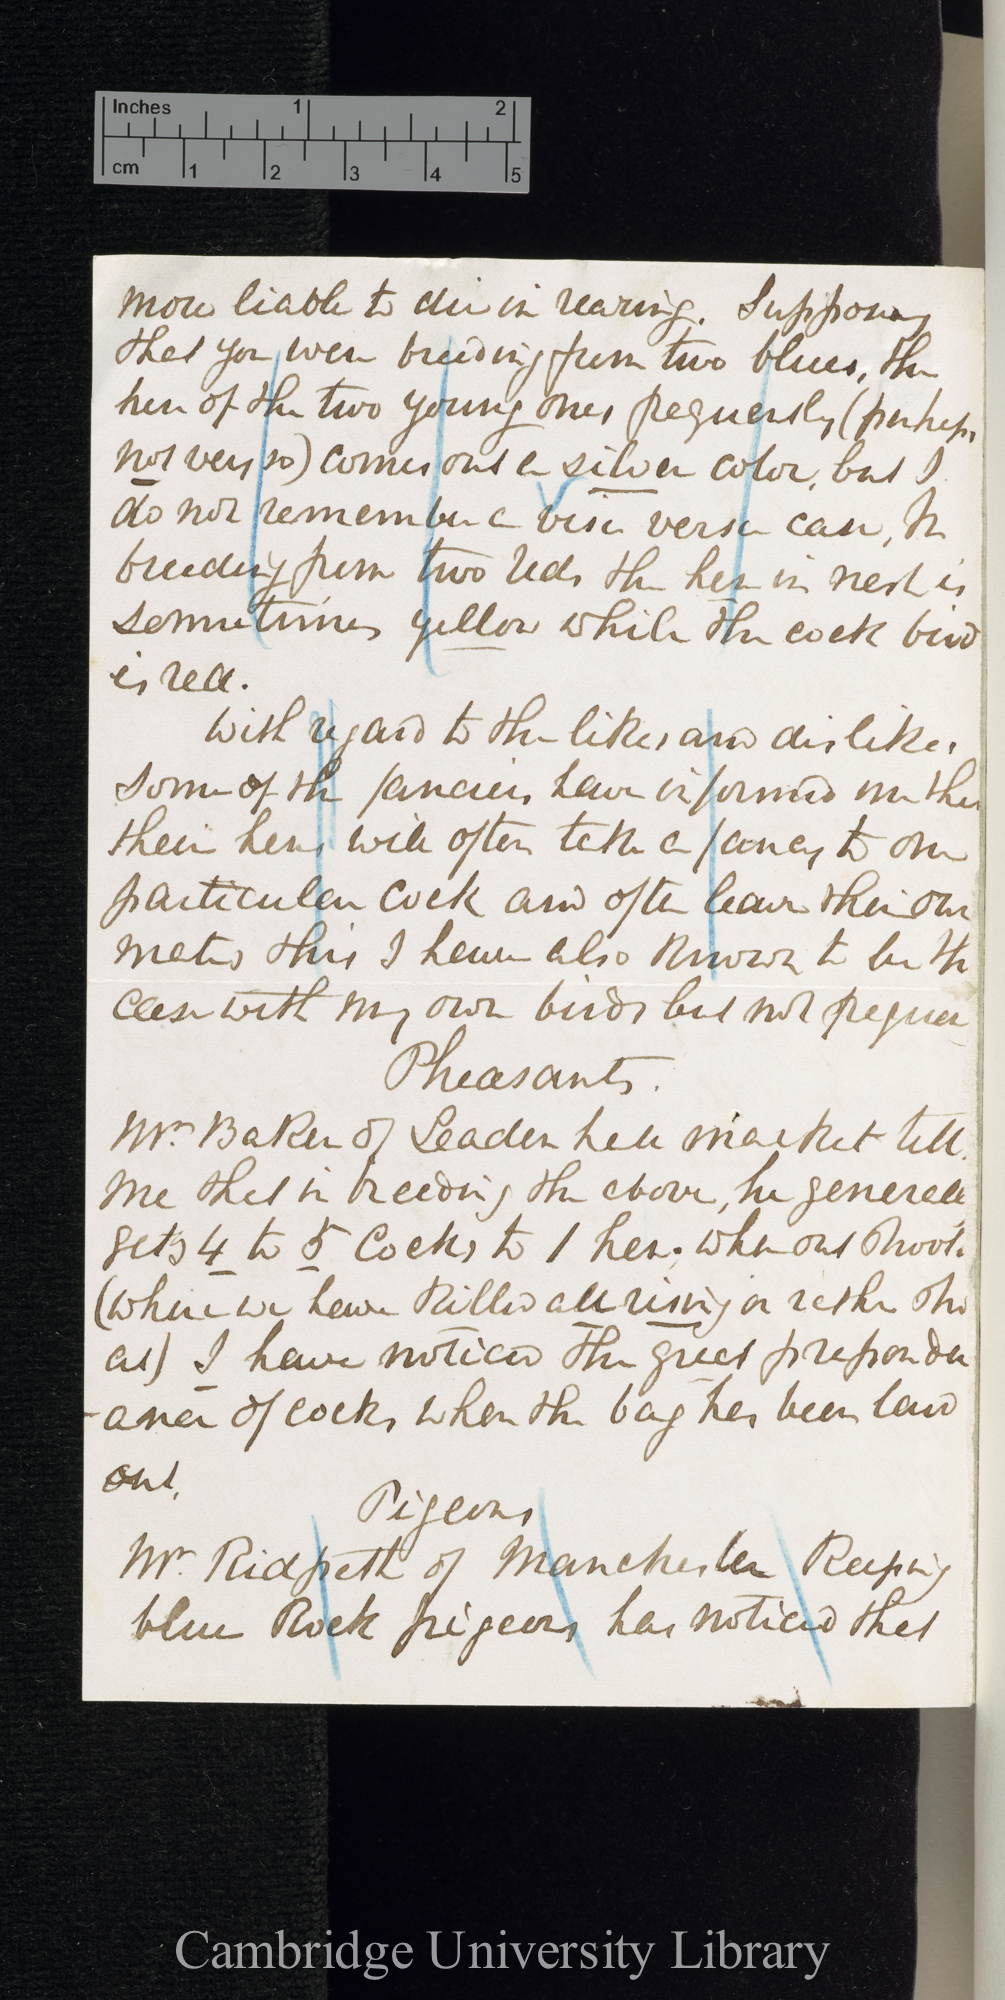 Inches 1 2
cm 1 2 3 4 5
more liable to die in rearing. Supposing
that you were breeding from two blues, the
hen of the two young ones frequently (perhaps
not very so) comes out a silver color, but I
do not remember a visa versa case, In
breeding from two reds the hen in nest is
sometimes yellow while the cock bird
is red.
With regard to the likes and dislikes
some of the fanciers have informed me that
their hens will often take a fancy to one
particular cock and often leave their own
mates this I have also known to be the
case with my own birds but not frequen
Pheasants.
Mr. Baker of Leaden hall market tells
me that in breeding the above, he generall
gets 4 to 5 Cocks to 1 hen. when out shooti
(where we have killed all rising or rather sho
at) I have noticed the great preponder
-ance of cocks when the bag has been laid
out.
Pigeons
Mr. Ridpeth of Manchester keeping
blue Rock pigeons has noticed that
Cambridge University Library